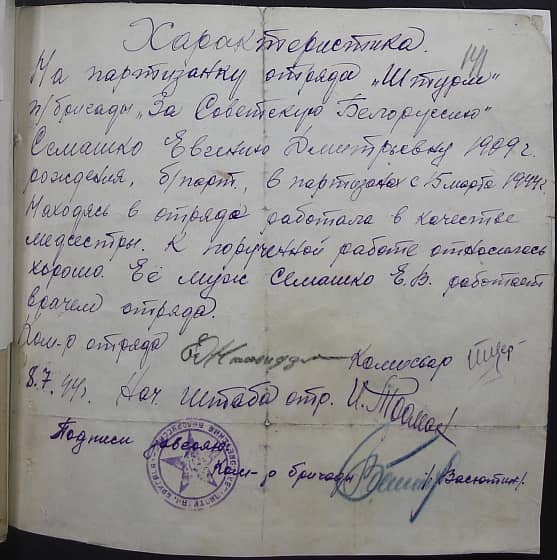 Характеристика.
На партизанку отряда „Штурм"
п/бригады „За Советскую Белоруссию"
Семашко Евгению Дмитрьевну 1909 г.
рождения, б/парт., в партизанах с 15 марта 1944 г.
Находясь в отряде работала в качестве
медсестры. К порученной работе относилась
хорошо. Её муж Семашко Е.В. работает
врачем отряда.
Ком-р отряда Комиссар
8.7.44 г. Нач. штаба отр.
Подписи заверяю
Ком-р бригады /Васютин/